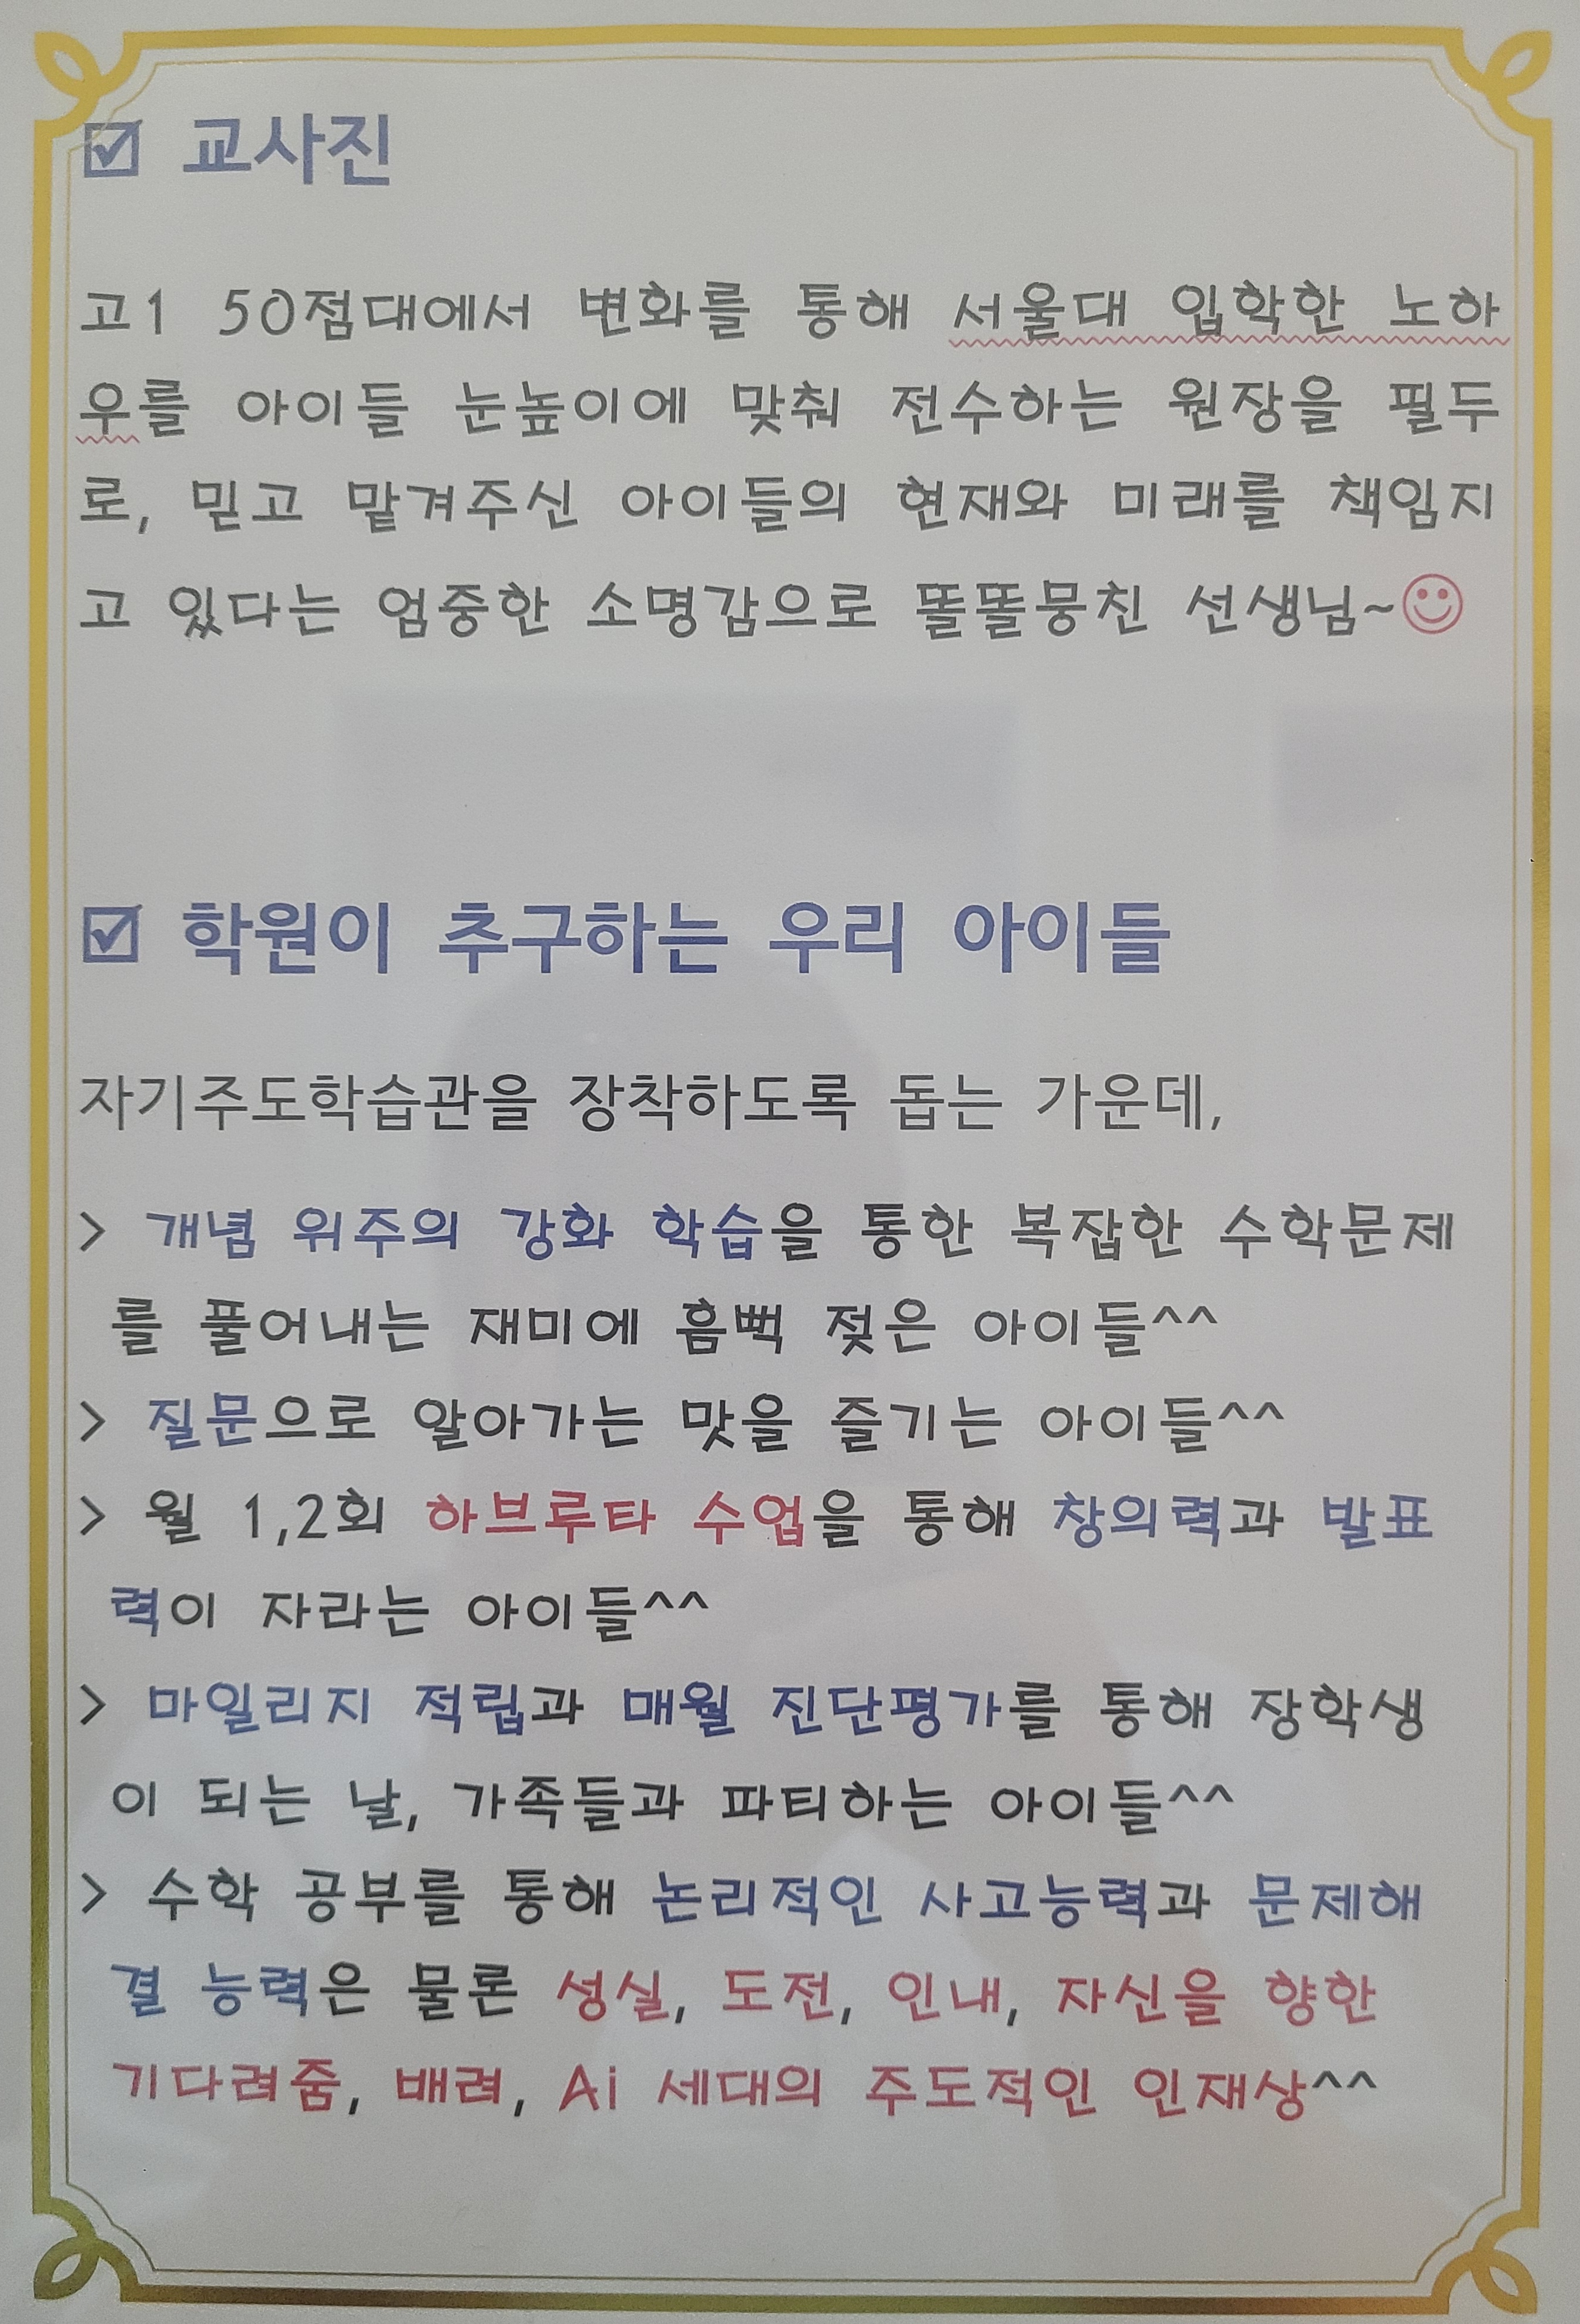 ☑ 교사진
고1 50점대에서 변화를 통해 서울대 입학한 노하
우를 아이들 눈높이에 맞춰 전수하는 원장을 필두
로, 믿고 맡겨주신 아이들의 현재와 미래를 책임지
고 있다는 엄중한 소명감으로 똘똘뭉친 선생님~☺
☑ 학원이 추구하는 우리 아이들
자기주도학습관을 장착하도록 돕는 가운데,
> 개념 위주의 강화 학습을 통한 복잡한 수학문제
를 풀어내는 재미에 흠뻑 젖은 아이들^^
> 질문으로 알아가는 맛을 즐기는 아이들^^
> 월 1,2회 하브루타 수업을 통해 창의력과 발표
력이 자라는 아이들^^
> 마일리지 적립과 매월 진단평가를 통해 장학생
이 되는 날, 가족들과 파티하는 아이들^^
> 수학 공부를 통해 논리적인 사고능력과 문제해
결 능력은 물론 성실, 도전, 인내, 자신을 향한
기다려줌, 배려, Ai 세대의 주도적인 인재상^^